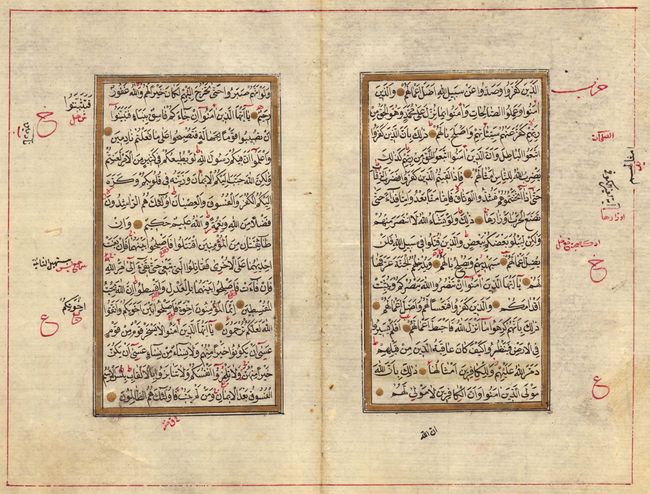 الَّذِينَ كَفَرُوا وَصَدُّوا عَنْ سَبِيلِ اللهِ اَضَلَّ اَعْمَالَهُمْ وَالَّذِينَ
اٰمَنُوا وَعَمِلُوا الصَّالِحَاتِ وَاٰمَنُوا بِمَا نُزِّلَ عَلٰى مُحَمَّدٍ وَهُوَ الْحَقُّ مِنْ
رَبِّهِمْ كَفَّرَ عَنْهُمْ سَيِّئَاتِهِمْ وَاَصْلَحَ بَالَهُمْ ذٰلِكَ بِاَنَّ الَّذِينَ كَفَرُوا
اتَّبَعُوا الْبَاطِلَ وَاَنَّ الَّذِينَ اٰمَنُوا اتَّبَعُوا الْحَقَّ مِنْ رَبِّهِمْ كَذٰلِكَ
يَضْرِبُ اللهُ لِلنَّاسِ اَمْثَالَهُمْ فَاِذَا لَقِيتُمُ الَّذِينَ كَفَرُوا فَضَرْبَ الرِّقَابِ
حَتّٰى اِذَا اَثْخَنْتُمُوهُمْ فَشُدُّوا الْوَثَاقَ فَاِمَّا مَنًّا بَعْدُ وَاِمَّا فِدَاءً حَتّٰى
تَضَعَ الْحَرْبُ اَوْزَارَهَا ذٰلِكَ وَلَوْ يَشَاءُ اللهُ لَانْتَصَرَ مِنْهُمْ
وَلٰكِنْ لِيَبْلُوَ بَعْضَكُمْ بِبَعْضٍ وَالَّذِينَ قُتِلُوا فِي سَبِيلِ اللهِ فَلَنْ
يُضِلَّ اَعْمَالَهُمْ سَيَهْدِيهِمْ وَيُصْلِحُ بَالَهُمْ وَيُدْخِلُهُمُ الْجَنَّةَ عَرَّفَهَا
لَهُمْ يَا اَيُّهَا الَّذِينَ اٰمَنُوا اِنْ تَنْصُرُوا اللهَ يَنْصُرْكُمْ وَيُثَبِّتْ
اَقْدَامَكُمْ وَالَّذِينَ كَفَرُوا فَتَعْسًا لَهُمْ وَاَضَلَّ اَعْمَالَهُمْ
ذٰلِكَ بِاَنَّهُمْ كَرِهُوا مَا اَنْزَلَ اللهُ فَاَحْبَطَ اَعْمَالَهُمْ اَفَلَمْ يَسِيرُوا
فِي الْاَرْضِ فَيَنْظُرُوا كَيْفَ كَانَ عَاقِبَةُ الَّذِينَ مِنْ قَبْلِهِمْ
دَمَّرَ اللهُ عَلَيْهِمْ وَلِلْكَافِرِينَ اَمْثَالُهَا ذٰلِكَ بِاَنَّ اللهَ
مَوْلَى الَّذِينَ اٰمَنُوا وَاَنَّ الْكَافِرِينَ لَا مَوْلٰى لَهُمْ
ان الله
حزب
اوزارها
خ
ع
وَلَوْ اَنَّهُمْ صَبَرُوا حَتّٰى تَخْرُجَ اِلَيْهِمْ لَكَانَ خَيْرًا لَهُمْ وَاللهُ غَفُورٌ
رَحِيمٌ يَا اَيُّهَا الَّذِينَ اٰمَنُوا اِنْ جَاءَكُمْ فَاسِقٌ بِنَبَاٍ فَتَبَيَّنُوا
اَنْ تُصِيبُوا قَوْمًا بِجَهَالَةٍ فَتُصْبِحُوا عَلٰى مَا فَعَلْتُمْ نَادِمِينَ
وَاعْلَمُوا اَنَّ فِيكُمْ رَسُولَ اللهِ لَوْ يُطِيعُكُمْ فِي كَثِيرٍ مِنَ الْاَمْرِ لَعَنِتُّمْ
وَلٰكِنَّ اللهَ حَبَّبَ اِلَيْكُمُ الْاِيمَانَ وَزَيَّنَهُ فِي قُلُوبِكُمْ وَكَرَّهَ
اِلَيْكُمُ الْكُفْرَ وَالْفُسُوقَ وَالْعِصْيَانَ اُولٰئِكَ هُمُ الرَّاشِدُونَ
فَضْلًا مِنَ اللهِ وَنِعْمَةً وَاللهُ عَلِيمٌ حَكِيمٌ وَاِنْ
طَائِفَتَانِ مِنَ الْمُؤْمِنِينَ اقْتَتَلُوا فَاَصْلِحُوا بَيْنَهُمَا فَاِنْ بَغَتْ
اِحْدٰيهُمَا عَلَى الْاُخْرٰى فَقَاتِلُوا الَّتِي تَبْغِي حَتّٰى تَفِيءَ اِلٰى اَمْرِ اللهِ
فَاِنْ فَاءَتْ فَاَصْلِحُوا بَيْنَهُمَا بِالْعَدْلِ وَاَقْسِطُوا اِنَّ اللهَ يُحِبُّ
الْمُقْسِطِينَ اِنَّمَا الْمُؤْمِنُونَ اِخْوَةٌ فَاَصْلِحُوا بَيْنَ اَخَوَيْكُمْ وَاتَّقُوا
اللهَ لَعَلَّكُمْ تُرْحَمُونَ يَا اَيُّهَا الَّذِينَ اٰمَنُوا لَا يَسْخَرْ قَوْمٌ مِنْ قَوْمٍ
عَسٰى اَنْ يَكُونُوا خَيْرًا مِنْهُمْ وَلَا نِسَاءٌ مِنْ نِسَاءٍ عَسٰى اَنْ يَكُنَّ
خَيْرًا مِنْهُنَّ وَلَا تَلْمِزُوا اَنْفُسَكُمْ وَلَا تَنَابَزُوا بِالْاَلْقَابِ بِئْسَ الِاسْمُ
الْفُسُوقُ بَعْدَ الْاِيمَانِ وَمَنْ لَمْ يَتُبْ فَاُولٰئِكَ هُمُ الظَّالِمُونَ
فَتَثَبَّتُوا
خ
ع